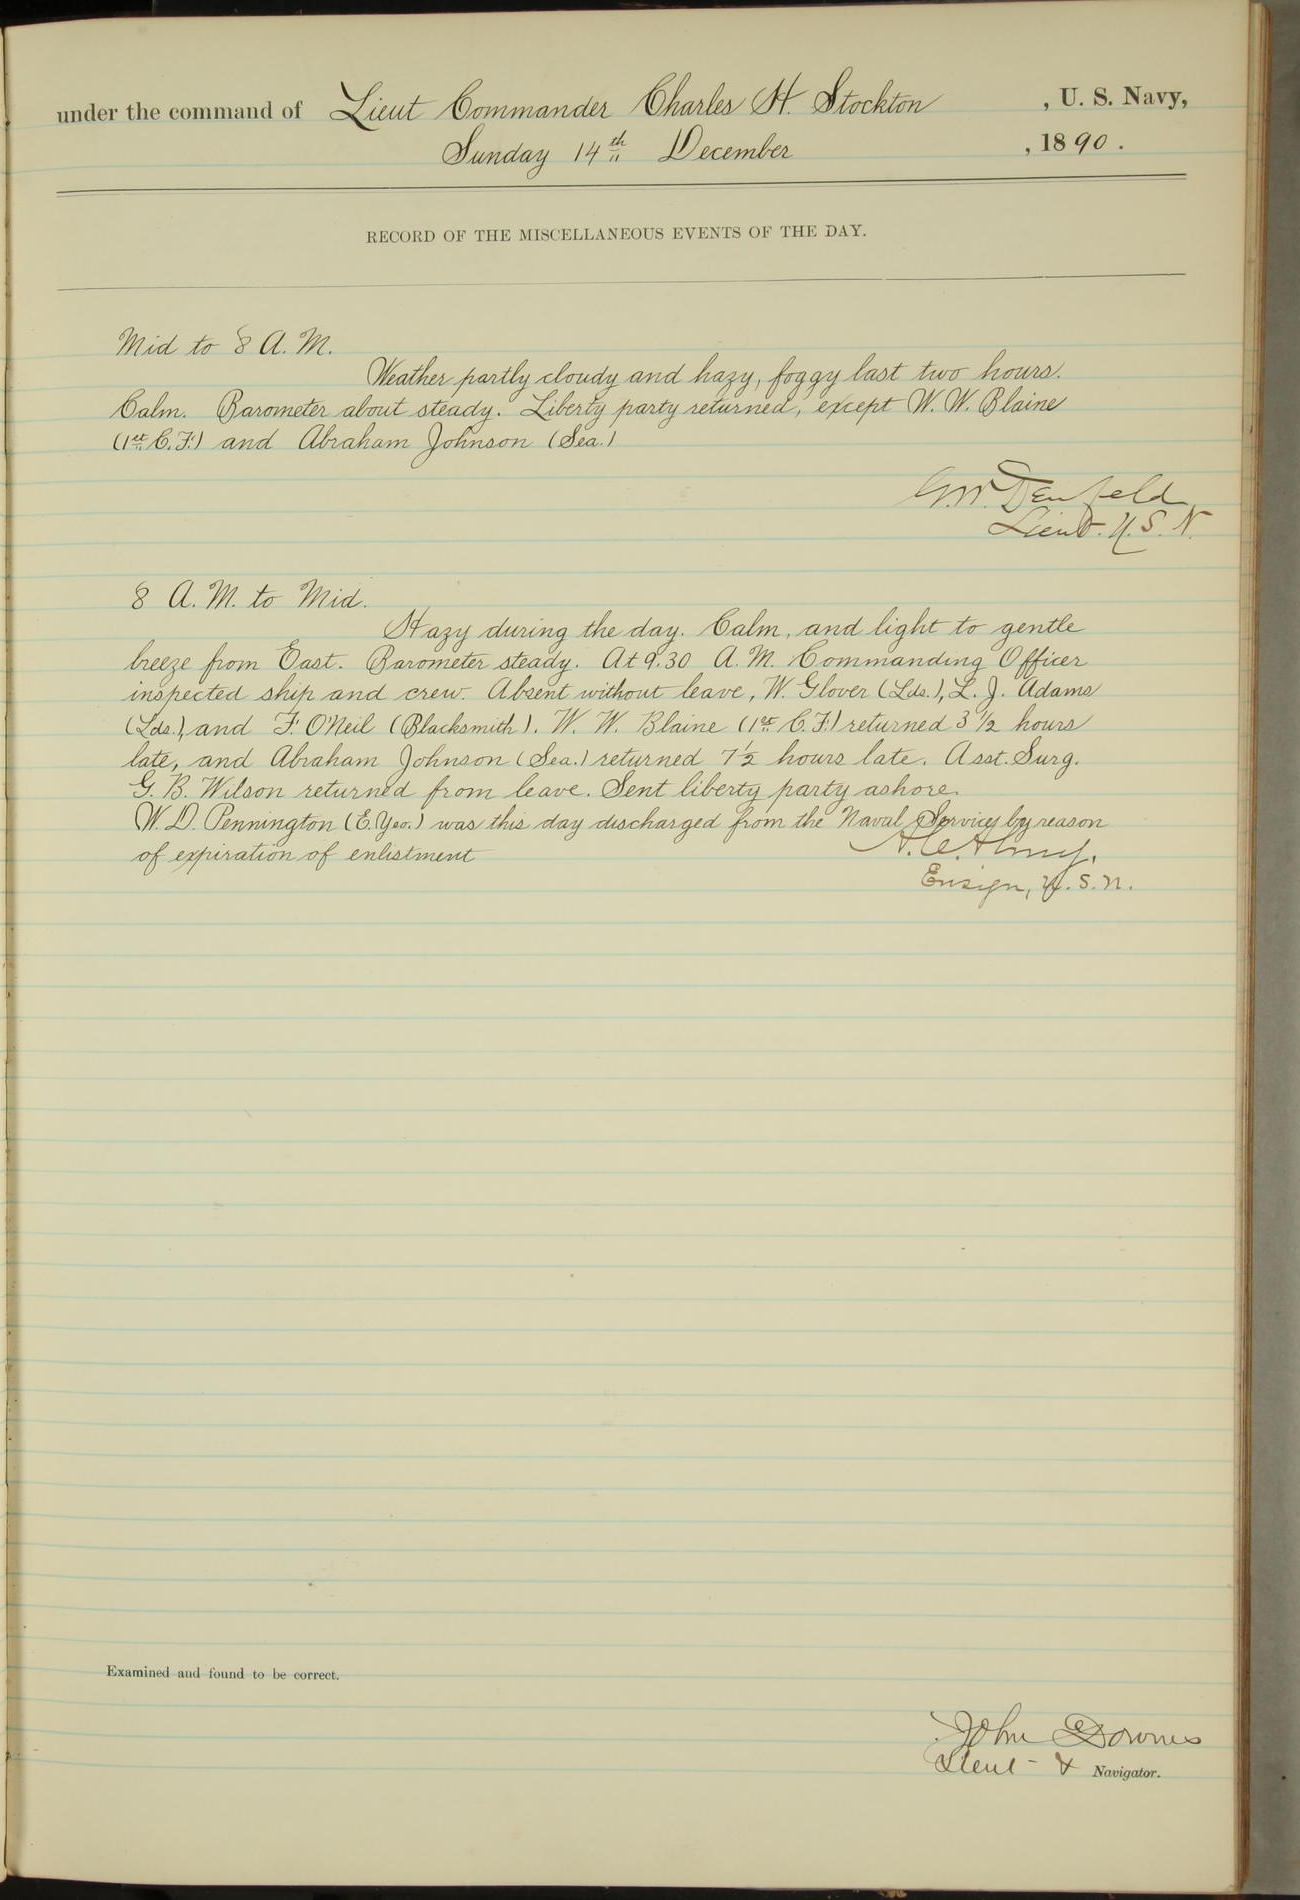 under the command of Lieut Commander Charles H. Stockton, U. S. Navy,
Sunday 14th December, 1890.
RECORD OF THE MISCELLANEOUS EVENTS OF THE DAY.
Mid to 8 A. M.
Weather partly cloudy and hazy, foggy last two hours.
Calm. Barometer about steady. Liberty party returned, except W. W. Blaine
(1st C. F.) and Abraham Johnson (Sea.)
G. W. Denfeld
Lieut. U. S. N.
8 A. M. to Mid.
Hazy during the day. Calm, and light to gentle
breeze from East. Barometer steady. At 9.30 A. M. Commanding Officer
inspected ship and crew. Absent without leave, W. Glover (Lds.), L. J. Adams
(Lds.), and F. O'Neil (Blacksmith). W. W. Blaine (1st C. F.) returned 3 1/2 hours
late, and Abraham Johnson (Sea.) returned 7 1/2 hours late. Asst. Surg.
G. B. Wilson returned from leave. Sent liberty party ashore.
W. D. Pennington (E. Yeo.) was this day discharged from the Naval Service by reason
of expiration of enlistment
Ensign, U. S. N.
Examined and found to be correct.
John Downes
Lieut - & Navigator.